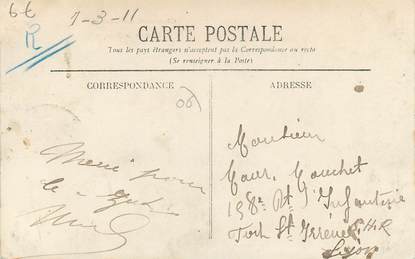 6€
1-3-11
R
CARTE POSTALE
Tous les pays étrangers n'acceptent pas la Correspondance au recto
(Se renseigner à la Poste)
CORRESPONDANCE
ADRESSE
Merci pour
le
Monsieur
Mouchet
158e Rt d'Infanterie
Fort St Irénée
Lyon